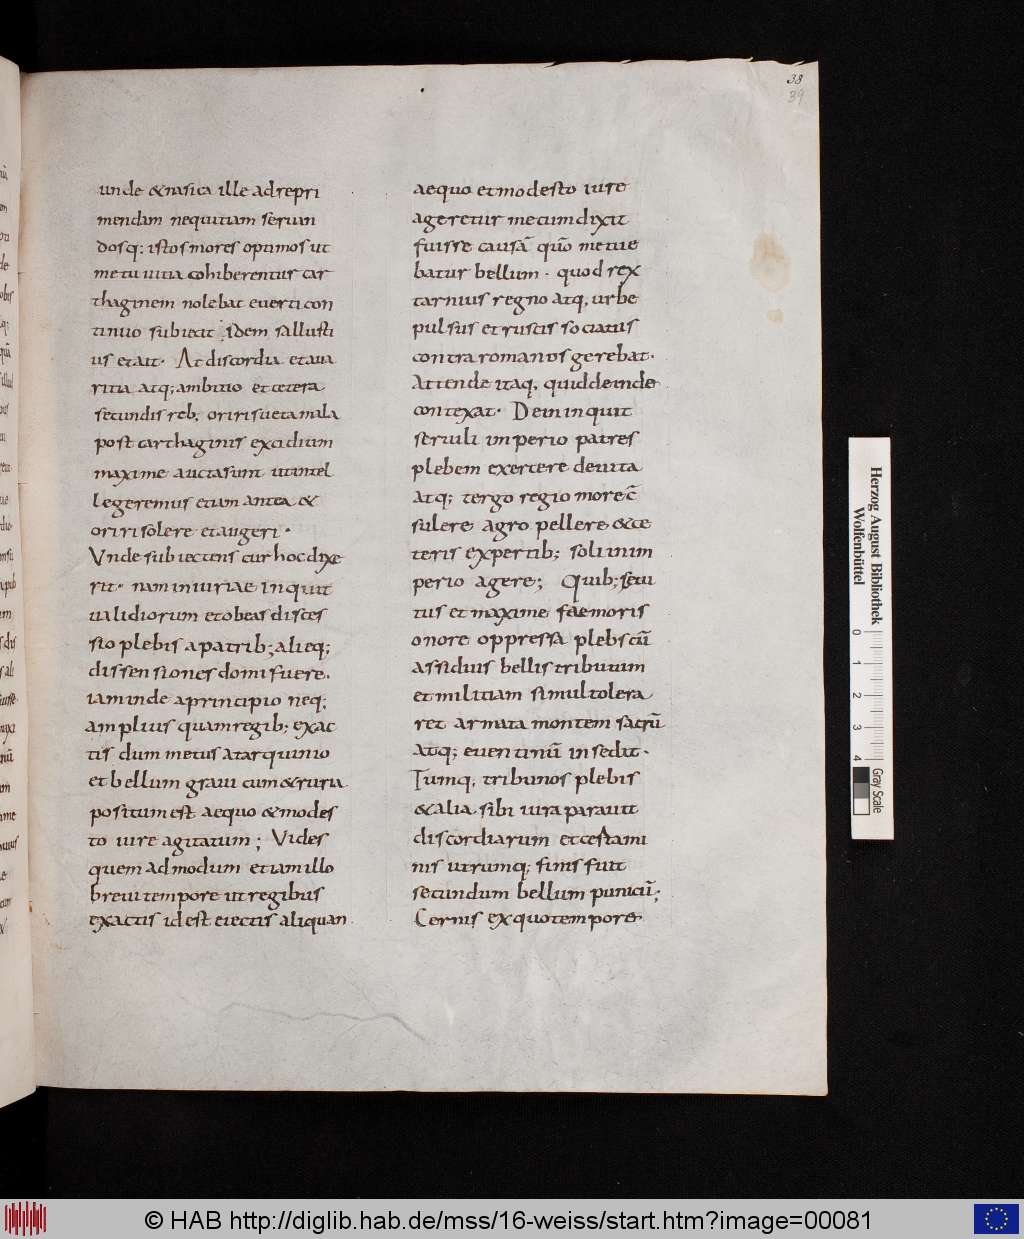 33
39
unde & nasica ille ad repri
mendam nequitiam seruan
dosq; istos mores optimos ut
metu uitia cohiberentur car
thaginem nolebat euerti con
tinuo subiecit ; idem sallusti
us et ait · At discordia et aua
ritia atq; ambitio et cetera
secundis reb; oriri sueta mala
post carthaginis excidium
maxime aucta sunt ut intel
legeremus etiam antea &
oriri solere et augeri ·
Vnde subiectens cur hoc dixe
rit · nam iniuriae inquit
ualidiorum et ob eas disces
sio plebis a patrib; alieq;
dissensiones domi fuere.
iam inde a principio neq;
amplius quam regib; exac
tis dum metus a tarquinio
et bellum graui cum & ruria
positum est aequo & modes
to iure agitatum ; Vides
quem ad modum etiam illo
breui tempore ut regibus
exactis id est eiectis aliquan
aequo et modesto iure
ageretur metum dixit
fuisse causã quõ metue
batur bellum · quod rex
tarnius regno atq, urbe
pulsus et ruscis sociatus
contra romanos gerebat ·
Attende itaq, quid deinde
contexat · Dein inquit
seruili imperio patres
plebem exercere de uita
atq; tergo regio more c̃
sulere agro pellere & ce
teris expertib; soli inim
perio agere ; Quib; seui
tus et maxime faemoris
onore oppressa plebs cũ
assiduis bellis tributum
et militiam simul tolera
ret armata montem sacrũ
atq; euentinũ insedit ·
Tumq, tribunos plebis
& alia sibi iura parauit
discordiarum et certami
nis utrumq; finis fuit
secundum bellum punicũ ;
Cernis ex quo tempore
Herzog August Bibliothek
Wolfenbüttel
0 1 2 3 4
Gray Scale
© HAB http://diglib.hab.de/mss/16-weiss/start.htm?image=00081